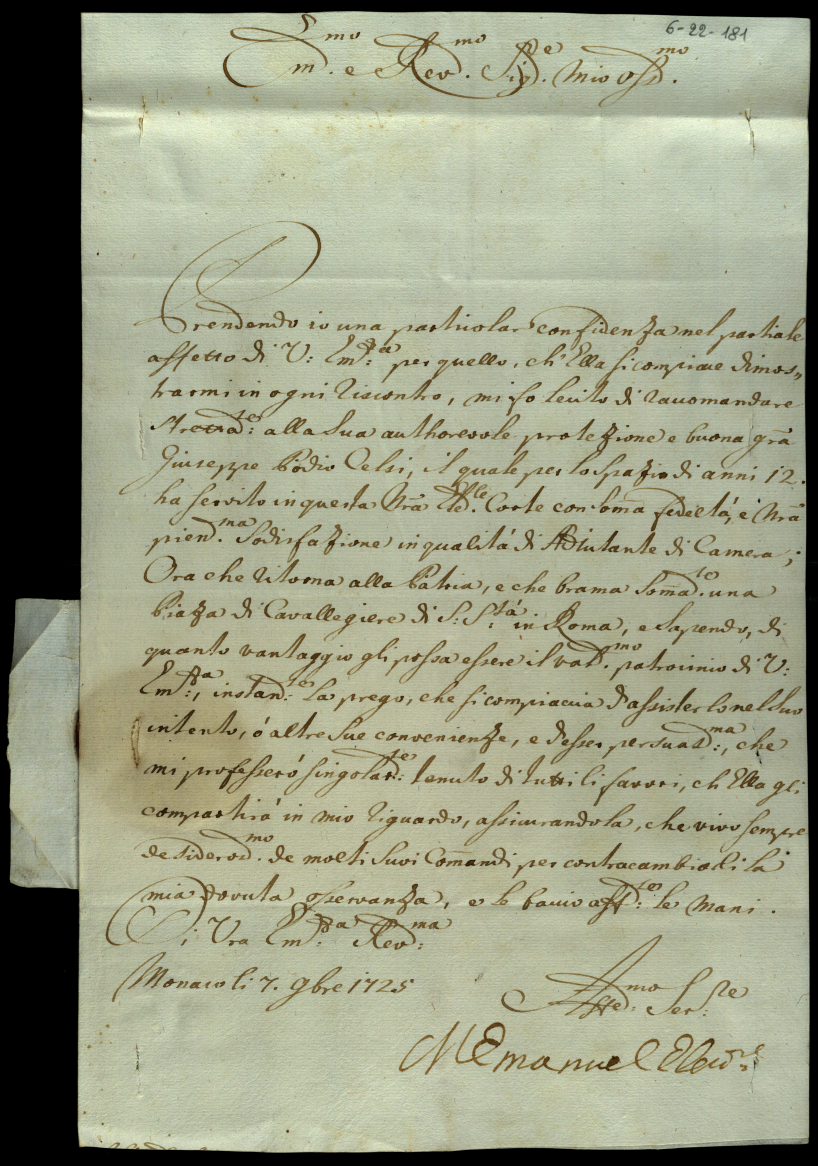 6-22-181
Em.mo e Rev.mo Sig.re Mio oss.mo
Prendendo io una particolar confidenza nel partiale
affetto di V: Em:za per quello, ch'Ella si compiace dimos„
trarmi in ogni riscontro, mi fo lecito di raccomandare
strettam:te alla Sua authorevole protezione e buona grã
Giuseppe Pòdio Celsi, il quale per lo spazio di anni 12.
ha servito in questa Nrã Elle. Corte con somã fedeltá, e Nrã
pien.ma Sodisfazione in qualitá di Adiutante di Camera;
Ora che ritorna alla Pátria, e che brama Somam.te una
Piazza di Cavallegiere di S: S:tá in Roma, e Sapendo, di
quanto vantaggio gli possa essere il val.mo patrocinio di V:
Em:za, instan:te La prego, che si compiaccia d'assisterlo nel Suo
intento, ó altre Sue convenienze, e d'esser persuas:ma, che
mi professeró singolar:te tenuto di tutti li favori, ch'Ella gli
compartirá in mio riguardo, assicurandola, che vivo sempre
desideros.mo de molti Suoi Comãndi per contracambio di la
mia dovuta osservanza, e le bacio aff:te le mani.
Di Vra Em:za Rev:ma
Monaco li 7. 9bre 1725
Affe.mo Ser:re
MEmanuel Elec:re